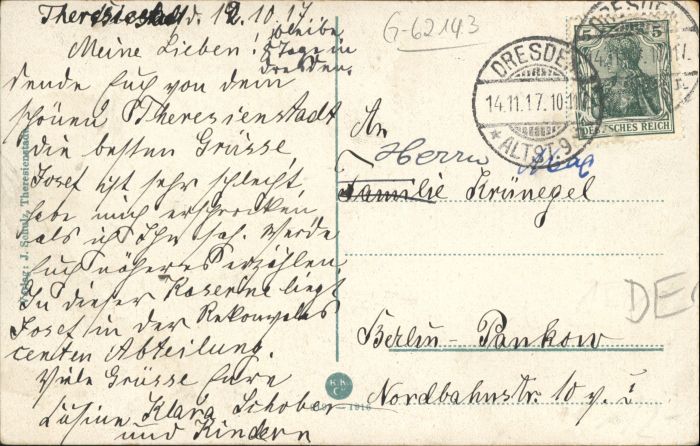 Theresienstadt d. 12.10.17
Meine Lieben!
bleibe
5 Tage in
Dresden.
Sende Euch von dem
schönen Theresienstadt
die besten Grüsse,
Josef ist sehr schlecht,
habe mich erschrocken
als ich Ihn sah. Werde
Euch näheres erzählen.
In dieser Kaserne liegt
Josef in der Rekonvales
centen Abteilung.
Viele Grüsse Eure
Cusine Klara Schober
und Kindern
Verlag: J. Schulz, Theresienstadt
G-62143
DRESDEN
14.11.17. 10-11
* ALTST. 9
DRESDEN
5 5
DEUTSCHES REICH
An
Herrn
Familie Krünegel
Berlin-Pankow
Nordbahnstr. 10 v. I
K.K.
1916
DEC